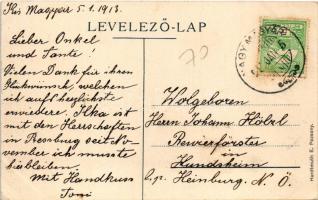 Kis Magyar 5.1.1913.
LEVELEZŐ-LAP
Lieber Onkel
und Tante!
Vielen Dank für ihren
Glückwunsch, welchen
ich aufs herzlichste
erwidere. Ilka ist
mit den Herrschaften
in Pressburg seit No-
vember ich musste
hierbleiben.
Mit Handkuss
Toni
70
NAGYMAGYAR
Wolgeboren
Herrn Johann Höbrl
Revierförster
in
Hundsheim
b/p. Heinburg. N. Ö.